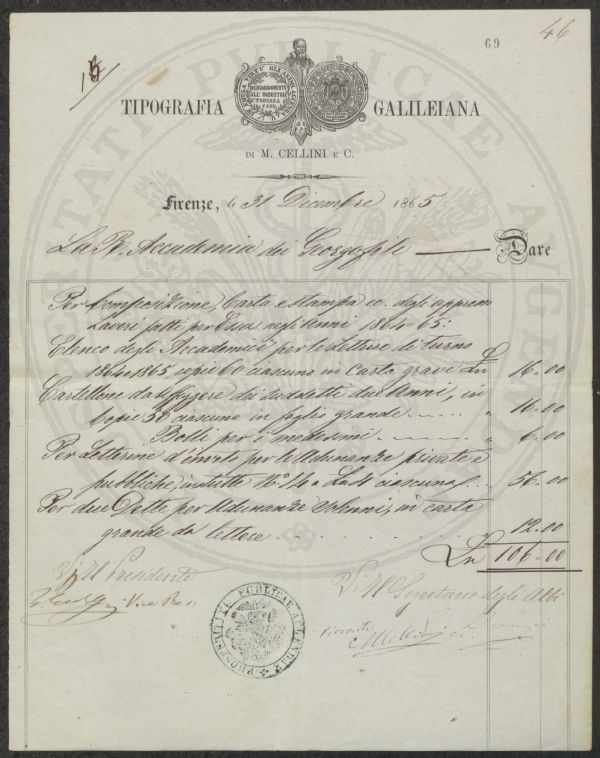 69
46
TIPOGRAFIA GALILEIANA
DI M. CELLINI E C.
Firenze, li 31 Dicembre 1865
La R. Accademia dei Georgofili Dare
Per Composizione, Carta e stampa ec. degli appresso
Lavori fatti per Essa negli Anni 1864-65:
Elenco degli Accademici per le Letture di turno
1864 e 1865 copie 60 ciascuno in Carta grave Ln £ 16.00
Cartellone da affiggere dei suddetti due Anni, in
Copie 30 ciascuno in foglio grande " 16.00
Bolli per i medesimi " 6.00
Per Letterine d'invito per le Adunanze private e
pubbliche, in tutte No. 14 a Ln 4 ciascuna " 56.00
Per due Dette per Adunanze Solenni, in carta
grande da lettere 12.00
Ln 106.00
V. Il Presidente
V. Il Segretario degli Atti
PROSPERITATI PUBLICAE AUGENDAE